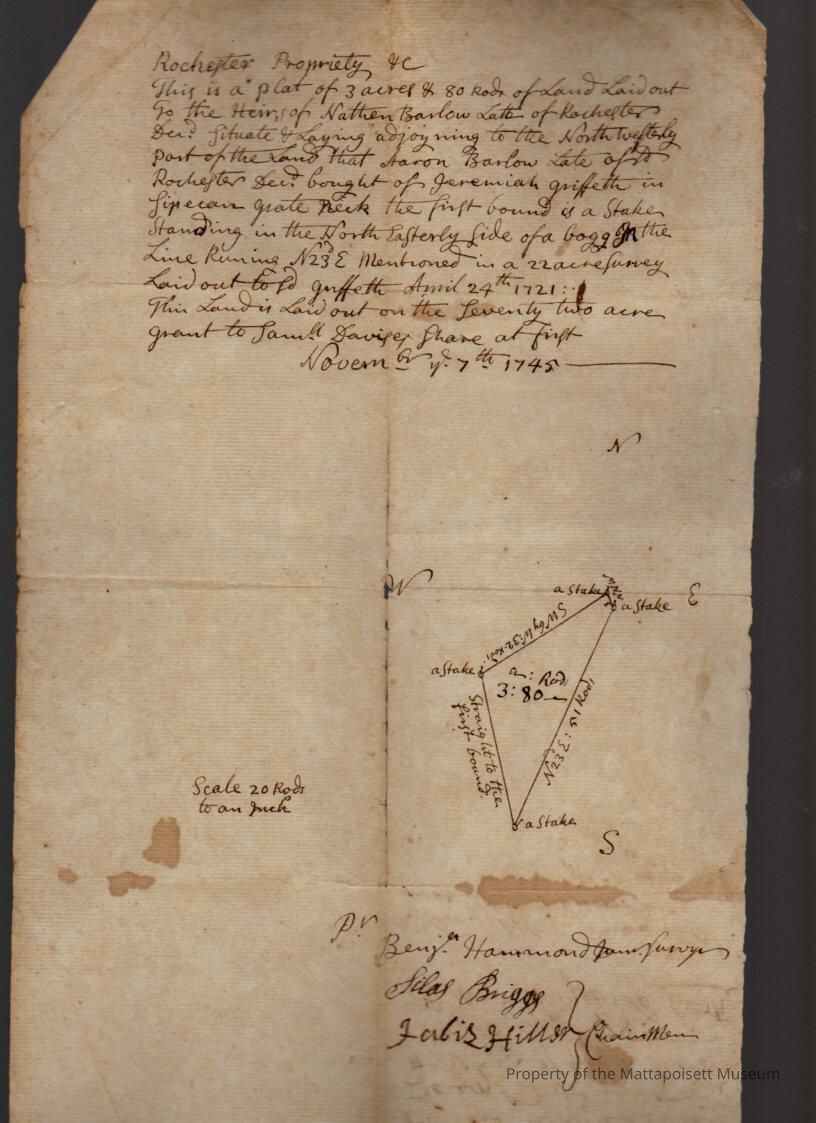 Rochester Propriety &c
This is a plat of 3 acres & 80 Rods of Land Laid out
To the Heirs of Nathen Barlow Late of Rochester
Decd Situate & Laying adjoyning to the North westerly
part of the Land that Aaron Barlow Late of sd
Rochester Decd bought of Jeremiah griffeth in
Sipecan grate Neck the first bound is a Stake
Standing in the North Easterly Side of a bogg In the
Line Runing N23°E Mentioned in a 22 acre Survey
Laid out to sd griffeth April 24th 1721:
This Land is Laid out on the Seventy two acre
grant to Samll Davises Share at first
Novembr ye 7th 1745
N
W
E
a Stake
a Stake
SWbyW: 32 Rods
a Stake
a: Rods
3: 80
Straight to the
first bound.
N23°E: 51 Rods
Scale 20 Rods
to an Inch
a Stake
S
Pr
Benja Hammond Junr. Survyr
Silas Briggs
Jabiz Hiller
Chain Men
Property of the Mattapoisett Museum